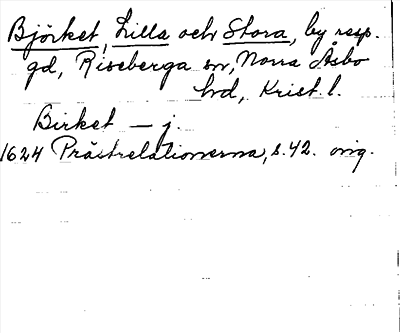 Björket, Lilla och Stora, by resp.
gd, Riseberga sn, Norra Åsbo
hd, Krist. l.
Birket — j.
1624 Prästrelationerna, s. 42. orig.